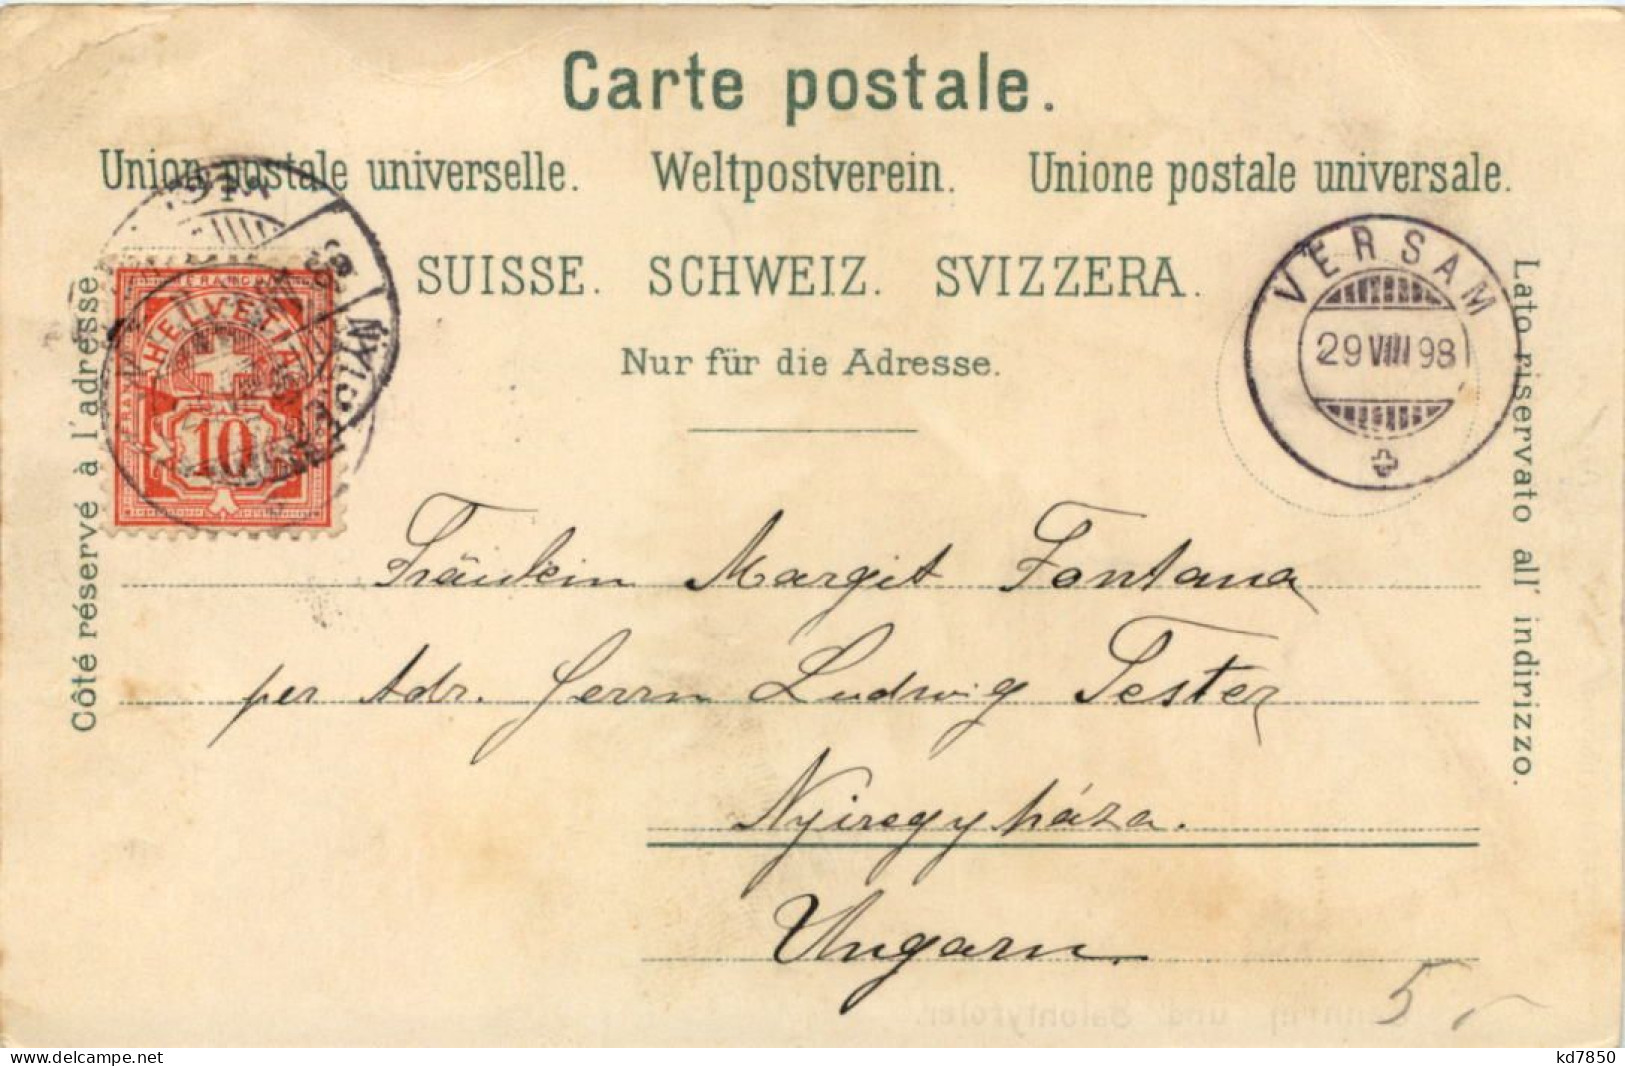 Carte postale.
Union postale universelle. Weltpostverein. Unione postale universale.
SUISSE. SCHWEIZ. SVIZZERA.
Nur für die Adresse.
Côté réservé à l'adresse
Lato riservato all' indirizzo.
HELVETIA
10
VERSAM
29 VIII 98
Fräulein Margit Fontana
per Adr. Herrn Ludwig Tester
Nyiregyháza.
Ungarn.
5
kd7850